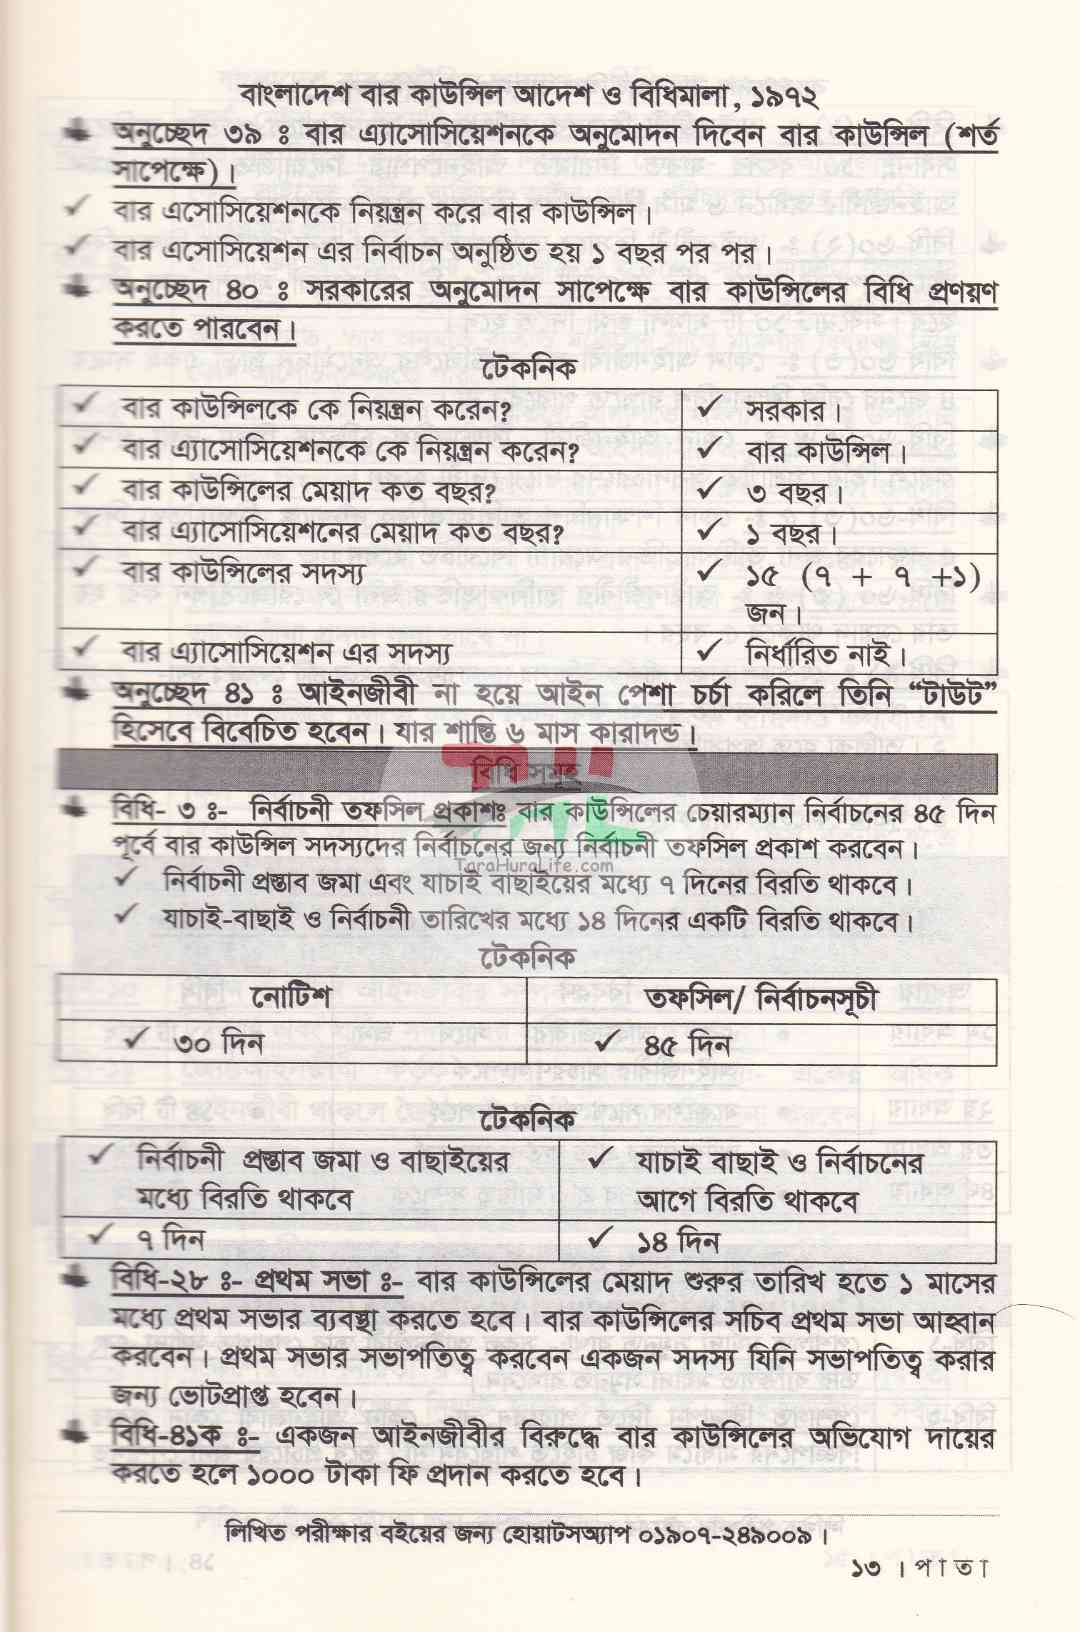 বাংলাদেশ বার কাউন্সিল আদেশ ও বিধিমালা, ১৯৭২
অনুচ্ছেদ ৩৯ ঃ বার এ্যাসোসিয়েশনকে অনুমোদন দিবেন বার কাউন্সিল (শর্ত
সাপেক্ষে)।
✓ বার এসোসিয়েশনকে নিয়ন্ত্রন করে বার কাউন্সিল।
✓ বার এসোসিয়েশন এর নির্বাচন অনুষ্ঠিত হয় ১ বছর পর পর।
অনুচ্ছেদ ৪০ ঃ সরকারের অনুমোদন সাপেক্ষে বার কাউন্সিলের বিধি প্রণয়ণ
করতে পারবেন।
টেকনিক
✓ বার কাউন্সিলকে কে নিয়ন্ত্রন করেন? ✓ সরকার।
✓ বার এ্যাসোসিয়েশনকে কে নিয়ন্ত্রন করেন? ✓ বার কাউন্সিল।
✓ বার কাউন্সিলের মেয়াদ কত বছর? ✓ ৩ বছর।
✓ বার এ্যাসোসিয়েশনের মেয়াদ কত বছর? ✓ ১ বছর।
✓ বার কাউন্সিলের সদস্য ✓ ১৫ (৭ + ৭ +১)
জন।
✓ বার এ্যাসোসিয়েশন এর সদস্য ✓ নির্ধারিত নাই।
অনুচ্ছেদ ৪১ ঃ আইনজীবী না হয়ে আইন পেশা চর্চা করিলে তিনি “টাউট”
হিসেবে বিবেচিত হবেন। যার শাস্তি ৬ মাস কারাদন্ড।
বিধি সমূহ
বিধি- ৩ ঃ- নির্বাচনী তফসিল প্রকাশঃ বার কাউন্সিলের চেয়ারম্যান নির্বাচনের ৪৫ দিন
পূর্বে বার কাউন্সিল সদস্যদের নির্বাচনের জন্য নির্বাচনী তফসিল প্রকাশ করবেন।
TaraHuraLife.com
✓ নির্বাচনী প্রস্তাব জমা এবং যাচাই বাছাইয়ের মধ্যে ৭ দিনের বিরতি থাকবে।
✓ যাচাই-বাছাই ও নির্বাচনী তারিখের মধ্যে ১৪ দিনের একটি বিরতি থাকবে।
টেকনিক
নোটিশ তফসিল/ নির্বাচনসূচী
✓ ৩০ দিন ✓ ৪৫ দিন
টেকনিক
✓ নির্বাচনী প্রস্তাব জমা ও বাছাইয়ের ✓ যাচাই বাছাই ও নির্বাচনের
মধ্যে বিরতি থাকবে আগে বিরতি থাকবে
✓ ৭ দিন ✓ ১৪ দিন
বিধি-২৮ ঃ- প্রথম সভা ঃ- বার কাউন্সিলের মেয়াদ শুরুর তারিখ হতে ১ মাসের
মধ্যে প্রথম সভার ব্যবস্থা করতে হবে। বার কাউন্সিলের সচিব প্রথম সভা আহ্বান
করবেন। প্রথম সভার সভাপতিত্ব করবেন একজন সদস্য যিনি সভাপতিত্ব করার
জন্য ভোটপ্রাপ্ত হবেন।
বিধি-৪১ক ঃ- একজন আইনজীবীর বিরুদ্ধে বার কাউন্সিলের অভিযোগ দায়ের
করতে হলে ১০০০ টাকা ফি প্রদান করতে হবে।
লিখিত পরীক্ষার বইয়ের জন্য হোয়াটসঅ্যাপ ০১৯০৭-২৪৯০০৯।
১৩ । পা তা